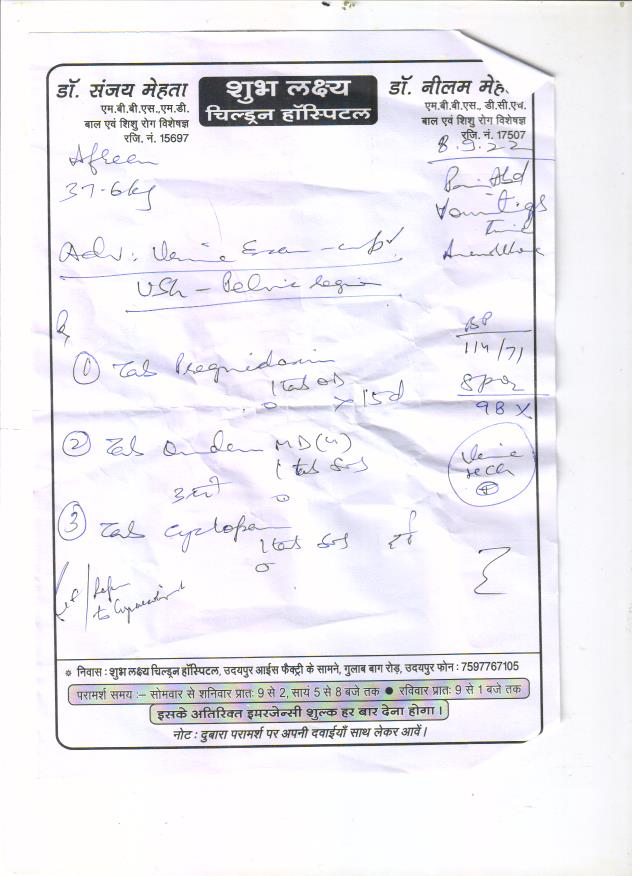 डॉ. संजय मेहता
एम.बी.बी.एस.,एम.डी.
बाल एवं शिशु रोग विशेषज्ञ
रजि. नं. 15697
शुभ लक्ष्य
चिल्ड्रन हॉस्पिटल
डॉ. नीलम मेह
एम.बी.बी.एस., डी.सी.एच.
बाल एवं शिशु रोग विशेषज्ञ
रजि. नं. 17507
Afreen
37.6kg
8.9.22
Pain Abd
Vomitigs
Adv: Urine Exam
USG - Pelvic region
BP
114/71
SPO2
98 %
① Tab
1 tab OD
x 15d
② Tab Ondem MD (4)
1 tab SOS
③ Tab Cyclopam
1 tab SOS
Urine
Ref
Refer
to
* निवास : शुभ लक्ष्य चिल्ड्रन हॉस्पिटल, उदयपुर आईस फैक्ट्री के सामने, गुलाब बाग रोड़, उदयपुर फोन : 7597767105
परामर्श समय :– सोमवार से शनिवार प्रातः 9 से 2, सायं 5 से 8 बजे तक ● रविवार प्रातः 9 से 1 बजे तक
इसके अतिरिक्त इमरजेन्सी शुल्क हर बार देना होगा।
नोट : दुबारा परामर्श पर अपनी दवाईयाँ साथ लेकर आवें।